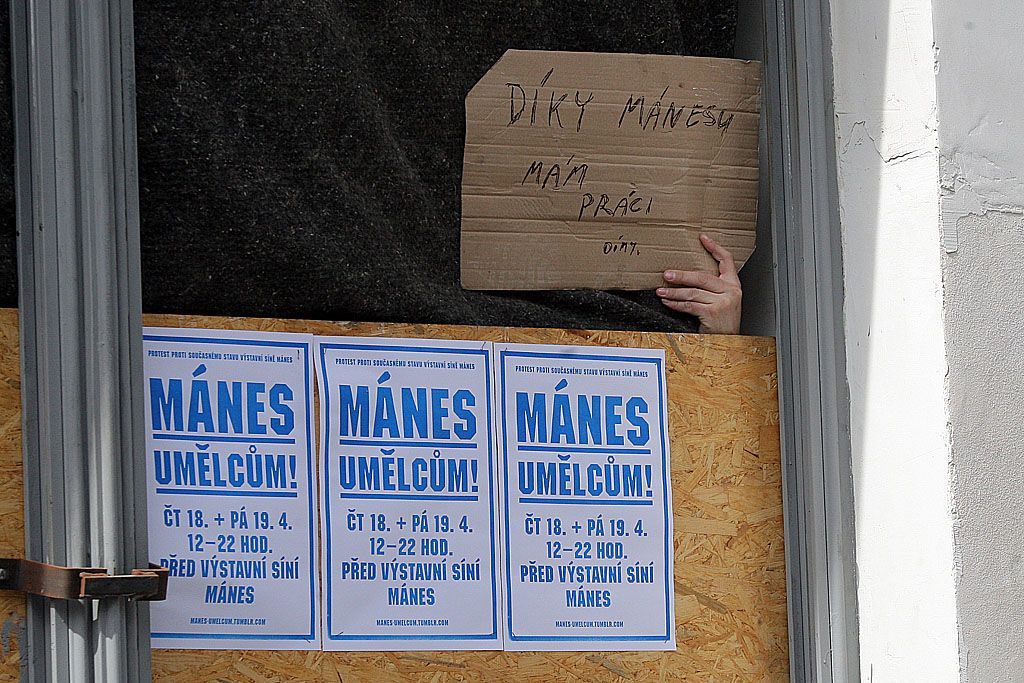 DÍKY MÁNESU
MÁM
PRÁCI
DÍKY.
PROTEST PROTI SOUČASNÉMU STAVU VÝSTAVNÍ SÍNĚ MÁNES
MÁNES
UMĚLCŮM!
ČT 18. + PÁ 19. 4.
12–22 HOD.
PŘED VÝSTAVNÍ SÍNÍ
MÁNES
MANES-UMELCUM.TUMBLR.COM
PROTEST PROTI SOUČASNÉMU STAVU VÝSTAVNÍ SÍNĚ MÁNES
MÁNES
UMĚLCŮM!
ČT 18. + PÁ 19. 4.
12–22 HOD.
PŘED VÝSTAVNÍ SÍNÍ
MÁNES
MANES-UMELCUM.TUMBLR.COM
PROTEST PROTI SOUČASNÉMU STAVU VÝSTAVNÍ SÍNĚ MÁNES
MÁNES
UMĚLCŮM!
ČT 18. + PÁ 19. 4.
12–22 HOD.
PŘED VÝSTAVNÍ SÍNÍ
MÁNES
MANES-UMELCUM.TUMBLR.COM